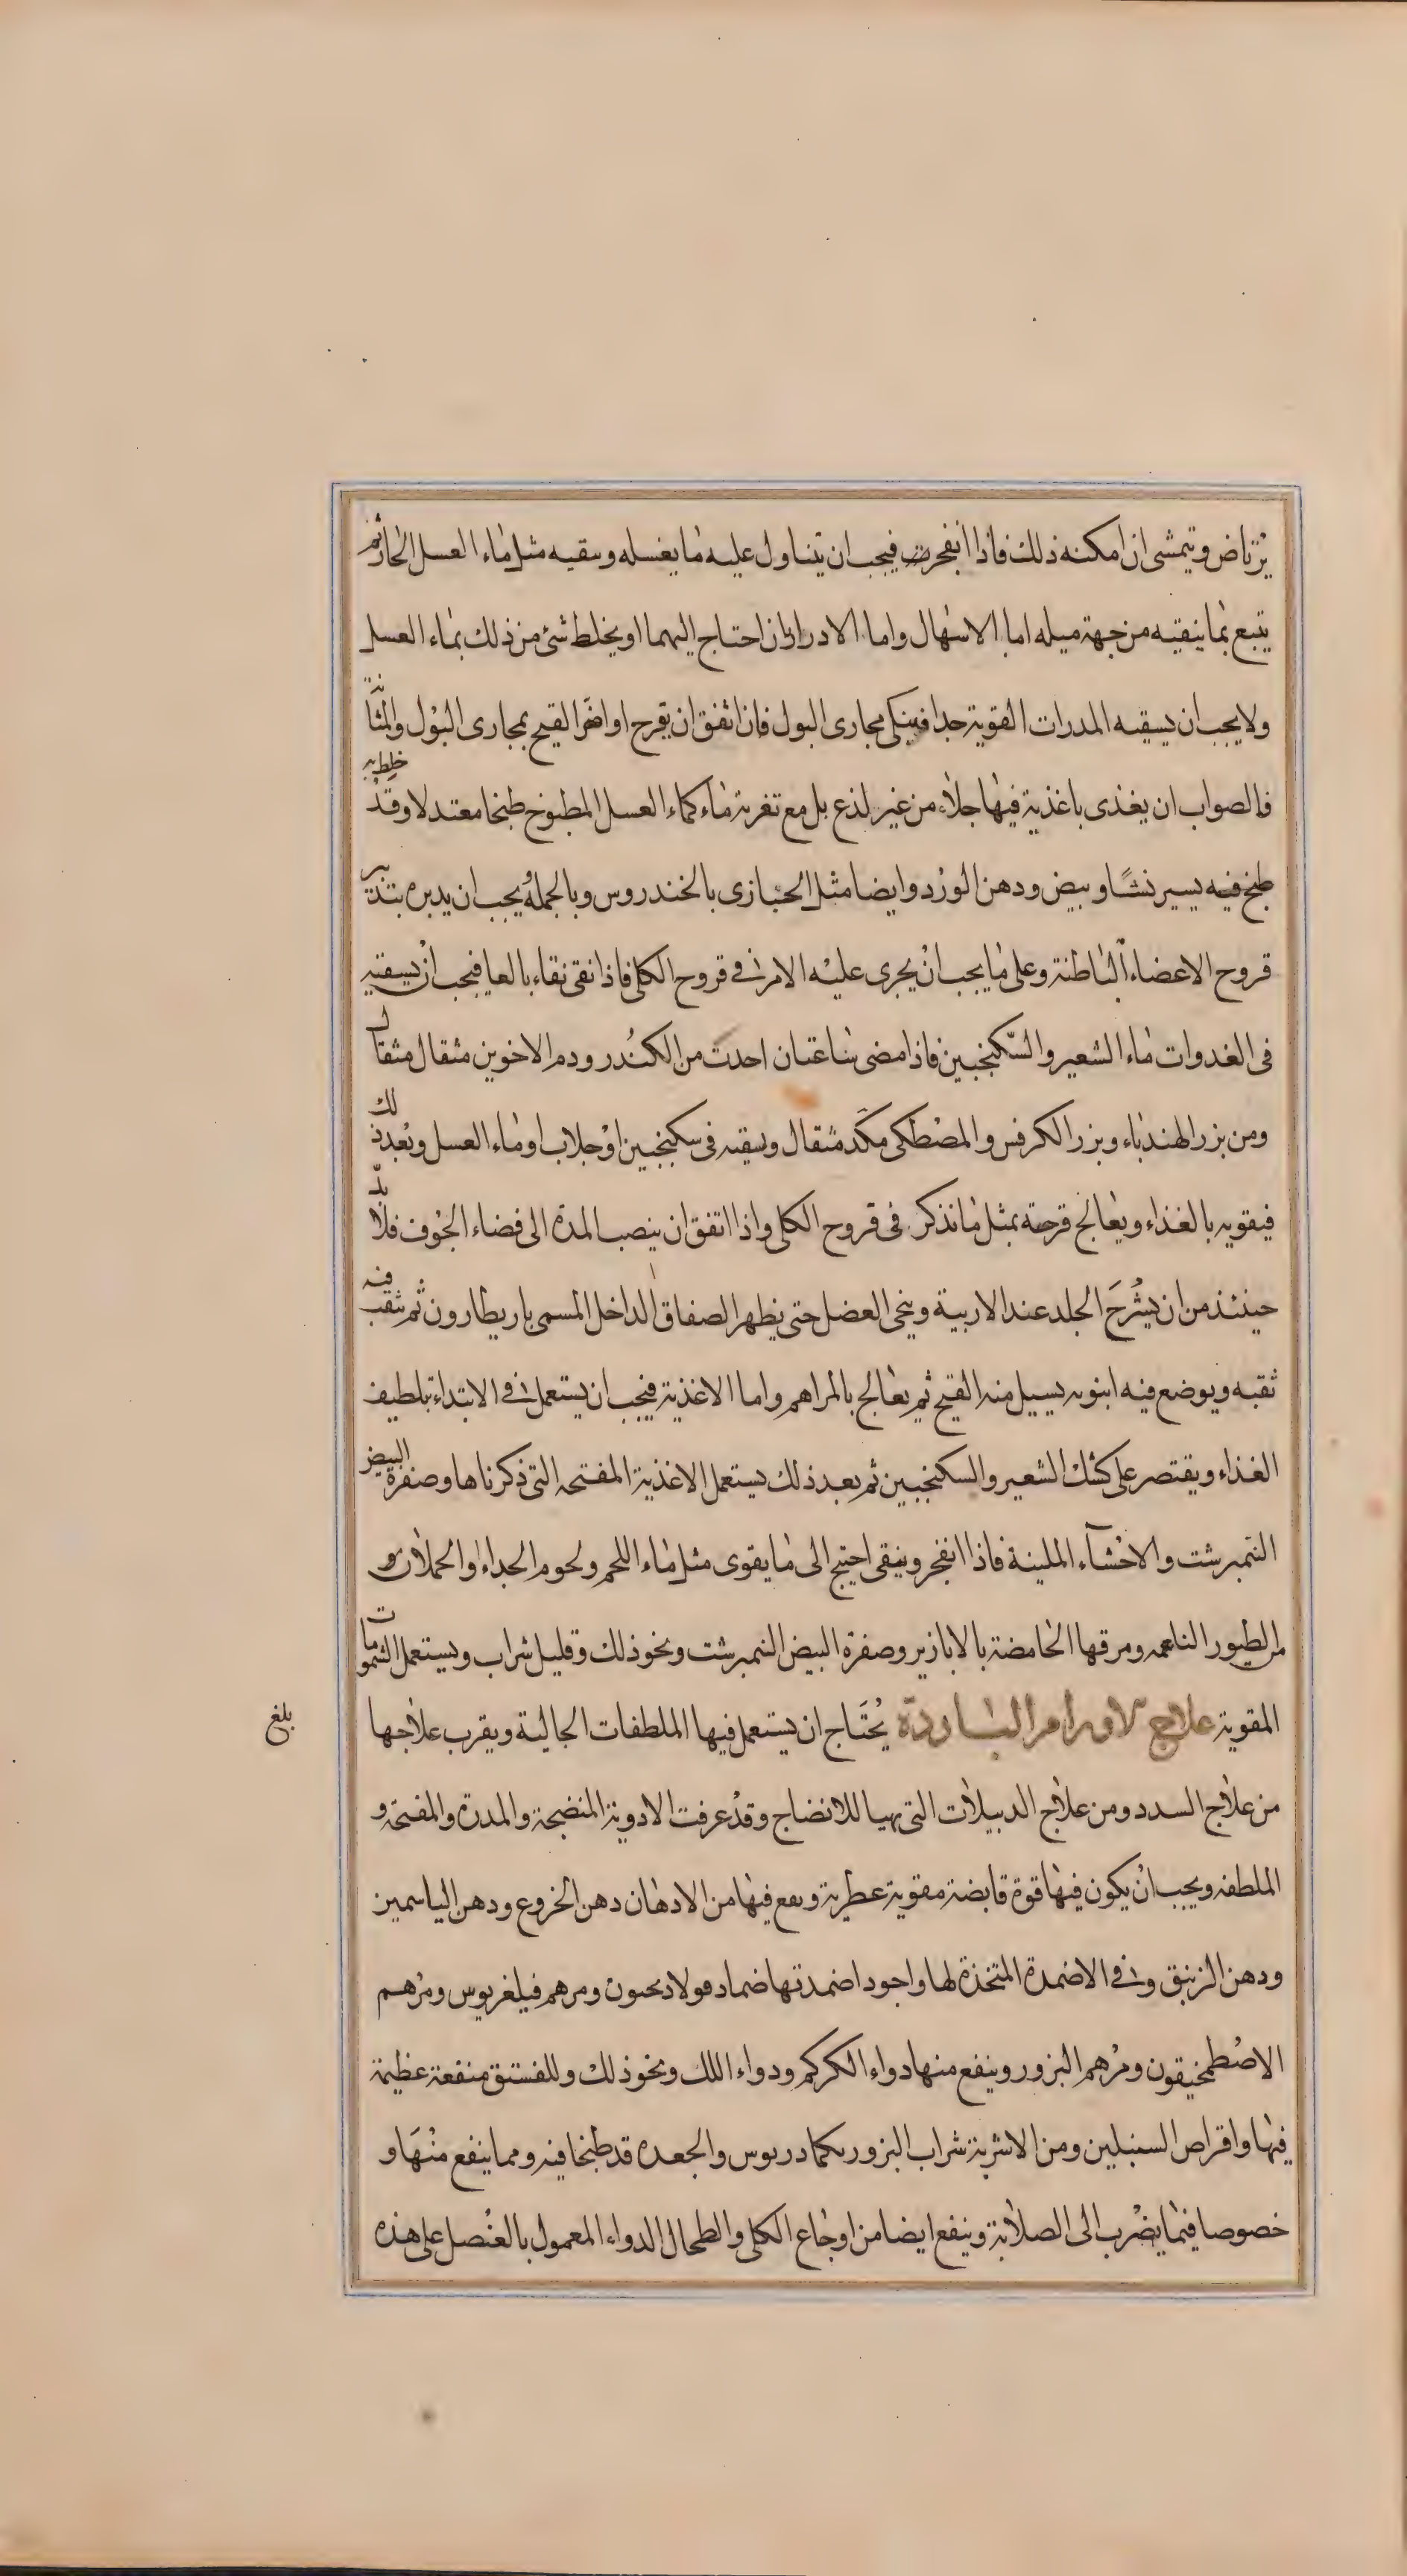 يرتاض ويتمشى ان امكنه ذلك فاذا انفجرت فيجب ان يتناول عليه ما يغسله وينقيه مثل ماء العسل الحار ثم
يتبع بما ينقيه من جهة ميله اما الاسهال واما الادرار ان احتاج اليهما او يخلط شئ من ذلك بماء العسل
ولا يجب ان يسقيه المدرات القوية جدا فينكى مجارى البول فان اتفق ان يقرح او اضر القيح بمجارى البول والمثانة
فالصواب ان يغذى باغذية فيها جلاء من غير لذع بل مع تغرية ماء كماء العسل المطبوخ طبخا معتدلا وقد خلط به
طبخ فيه يسير نشا وبيض ودهن الورد وايضا مثل الخبازى بالخندروس وبالجملة يجب ان يدبره بتدبير
قروح الاعضاء الباطنة وعلى ما يجب ان يجرى عليه الامر فى قروح الكلى فاذا نقى نقاء بالغا فيجب ان يسقيه
فى الغدوات ماء الشعير والسكنجبين فاذا مضى ساعتان اخذت من الكندر ودم الاخوين مثقال مثقال
ومن بزر الهندباء وبزر الكرفس والمصطكى مكد مثقال وسقيته فى سكنجبين او جلاب او ماء العسل وبعد ذلك
فيقويه بالغذاء ويعالج قرحته بمثل ما نذكر فى قروح الكلى واذا اتفق ان ينصب المدة الى فضاء الجوف فلا بد
حينئذ من ان يشرح الجلد عند الاربية وينحى العضل حتى يظهر الصفاق الداخل المسمى باريطارون ثم يثقب فيه
ثقبه ويوضع فيه انبوبه يسيل منه القيح ثم يعالج بالمراهم واما الاغذية فيجب ان يستعمل فى الابتداء تلطيف
الغذاء ويقتصر على كشك الشعير والسكنجبين ثم بعد ذلك يستعمل الاغذية المفتحه التى ذكرناها وصفرة البيض
النمبرشت والاحشاء الملينة فاذا انفجر وينقى احتيج الى ما يقوى مثل ماء اللحم ولحوم الجداء والحملان و
من الطيور الناعمه ومرقها الحامضة بالابازير وصفرة البيض النمبرشت ونحو ذلك وقليل شراب ويستعمل الشمومات
المقوية علاج الاورام الباردة يحتاج ان يستعمل فيها الملطفات الجالية ويقرب علاجها
بلغ
من علاج السدد ومن علاج الدبيلات التى تهيا للانضاج وقد عرفت الادوية المنضجة والمدرة والمفتحة و
الملطفه ويجب ان يكون فيها قوة قابضة مقوية عطرية ويقع فيها من الادهان دهن الخروع ودهن الياسمين
ودهن الزنبق وفى الاضمدة المتخذة لها واجود اضمدتها ضماد فولارحيون ومرهم فيلغريوس ومرهم
الاصطمخيقون ومرهم البزور وينفع منها دواء الكركم ودواء اللك ونحو ذلك وللفستق منفعة عظيمة
فيها واقراص السنبلين ومن الاشربة شراب البزور بكمادريوس والجعده قد طبخا فيه ومما ينفع منها و
خصوصا فيما يضرب الى الصلابة وينفع ايضا من اوجاع الكلى والطحال الدواء المعمول بالعنصل على هذه